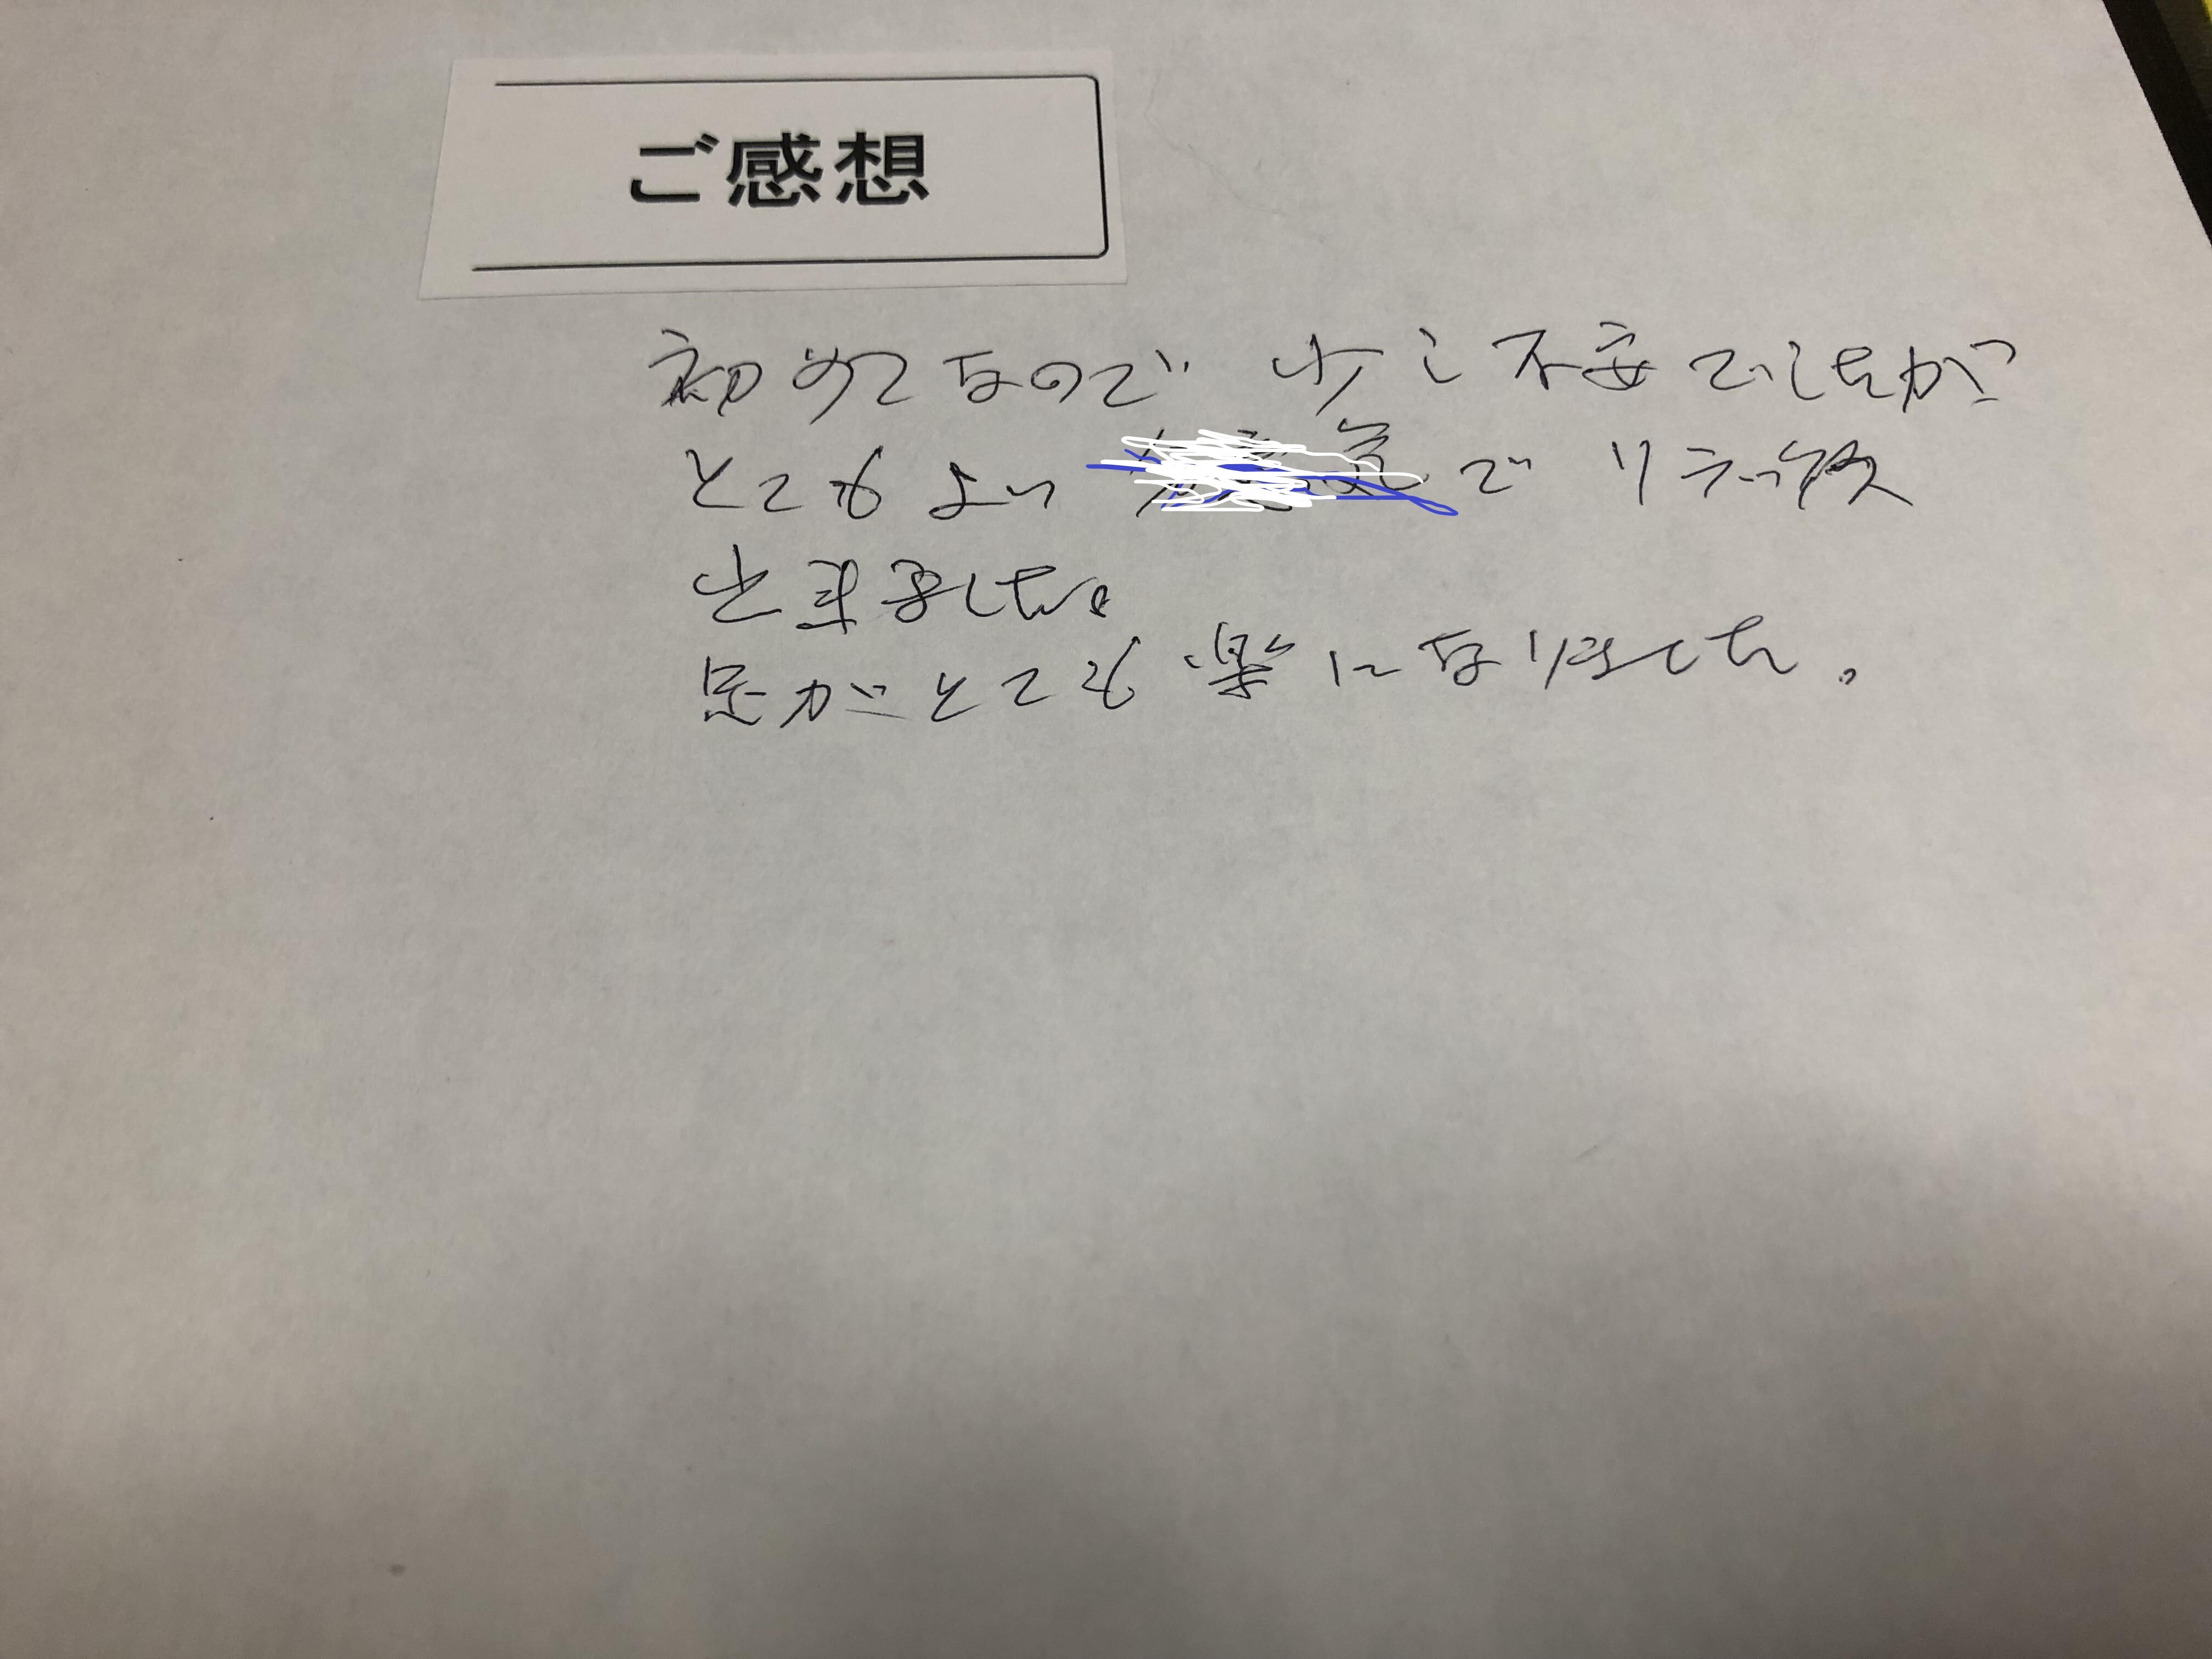 ご感想
初めてなので 少し不安でしたが
とてもよい で リラックス
出来ました。
足がとても楽になりました。